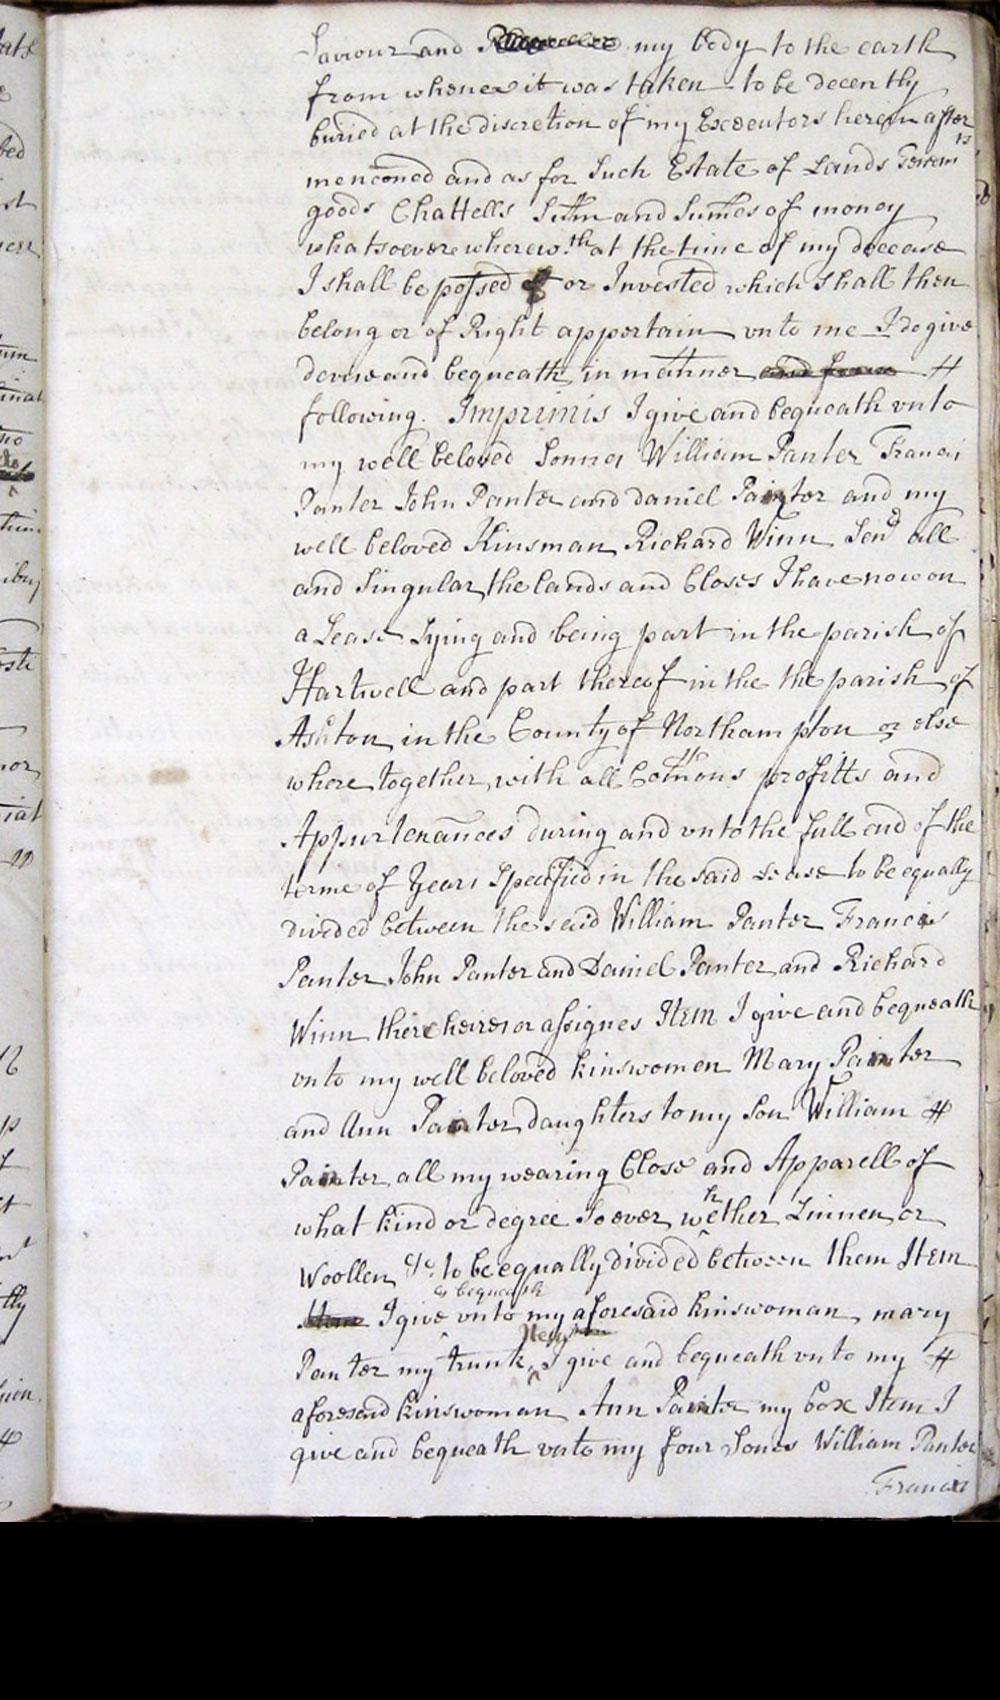 Saviour and my body to the earth
from whence it was taken to be decently
buried at the discretion of my Executors herein after
menconed and as for Such Estate of Lands Tenem
ts
goods Chattells Sum and Summes of money
whatsoever wherew.th at the time of my decease
I shall be possed of or Invested which shall then
belong or of Right appertain vnto me I do give
devise and bequeath in manner and forme #
following. Imprimis I give and bequeath vnto
my well beloved Sonnes William Panter Francis
Panter John Panter and daniel Painter and my
well beloved Kinsman Richard Winn Sen all
and Singular the lands and Closes I have now on
a Lease Lying and being part in the parish of
Hartwell and part thereof in the the parish of
Ashton in the County of Northampton or else
where together with all Comons profitts and
Appurtenances during and vnto the full end of the
terme of Years Specified in the said Lease to be equally
divided between the said William Panter Francis
Panter John Panter and Daniel Panter and Richard
Winn their heires or assignes Item I give and bequeath
vnto my well beloved kinswomen Mary Painter
and Ann Painter daughters to my Son William #
Painter all my wearing Close and Apparell of
what kind or degree So ever whether Linnen or
Woollen &c. to be equally divided between them Item
& bequeath
Item I give vnto my aforesaid kinswoman mary
Item
Panter my trunk I give and bequeath vnto my #
aforesaid kinswoman Ann Painter my box Item I
give and bequeath vnto my four Sones William Panter
Francis